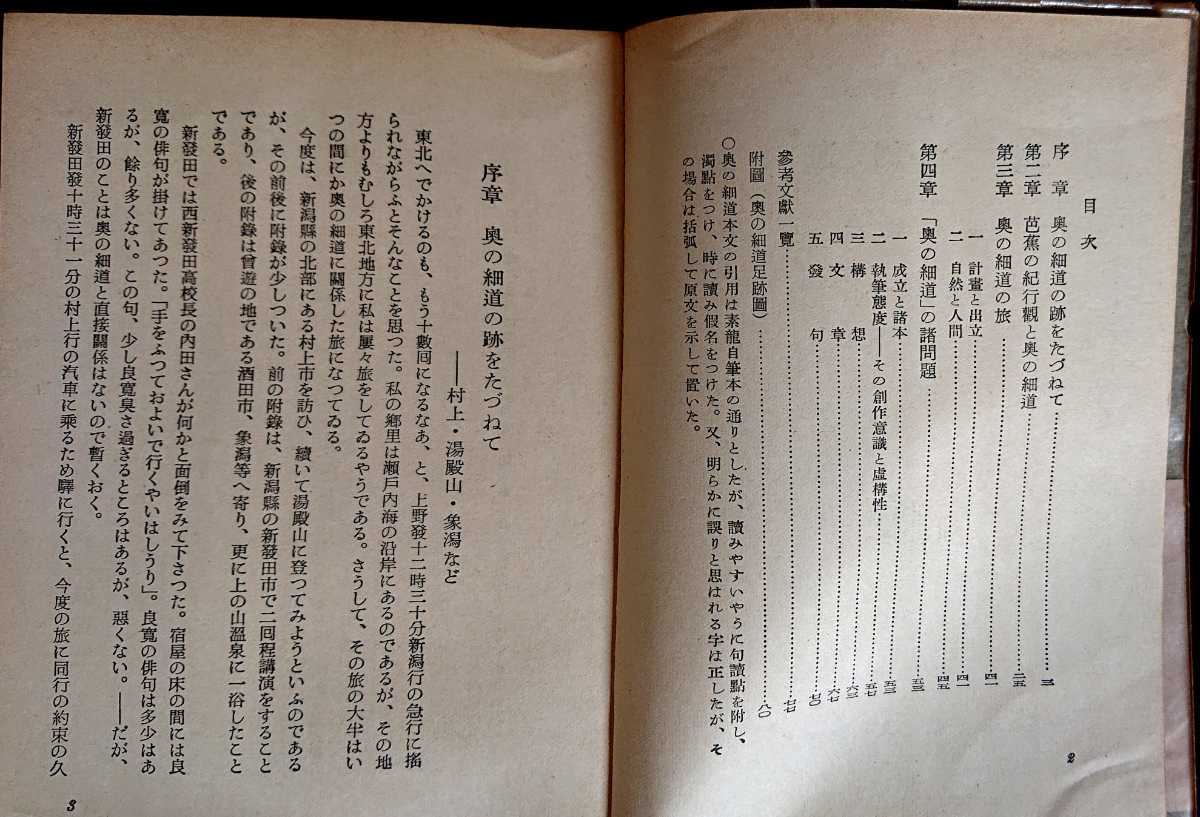 目次
序章 奧の細道の跡をたづねて……三
第二章 芭蕉の紀行觀と奧の細道……二五
第三章 奧の細道の旅……四一
一 計畫と出立……四一
二 自然と人間……四五
第四章 「奧の細道」の諸問題……五三
一 成立と諸本……五三
二 執筆態度――その創作意識と虛構性……五七
三 構想……六三
四 文章……六七
五 發句……七〇
參考文獻一覽……七七
附圖（奧の細道足跡圖）……八〇
〇奧の細道本文の引用は素龍自筆本の通りとしたが、讀みやすいやうに句讀點を附し、
濁點をつけ、時に讀み假名をつけた。又、明らかに誤りと思はれる字は正したが、そ
の場合は括弧して原文を示して置いた。
2
序章 奧の細道の跡をたづねて
――村上・湯殿山・象潟など
東北へでかけるのも、もう十數回になるなあ、と、上野發十二時三十分新潟行の急行に搖
られながらふとそんなことを思つた。私の鄕里は瀨戶內海の沿岸にあるのであるが、その地
方よりもむしろ東北地方に私は屢々旅をしてゐるやうである。さうして、その旅の大半はい
つの間にか奧の細道に關係した旅になつてゐる。
今度は、新潟縣の北部にある村上市を訪ひ、續いて湯殿山に登つてみようといふのである
が、その前後に附錄が少しついた。前の附錄は、新潟縣の新發田市で二回程講演をすること
であり、後の附錄は曾遊の地である酒田市、象潟等へ寄り、更に上の山溫泉に一浴したこと
である。
新發田では西新發田高校長の內田さんが何かと面倒をみて下さつた。宿屋の床の間には良
寬の俳句が掛けてあつた。「手をふつておよいで行くやいはしうり」。良寬の俳句は多少はあ
るが、餘り多くない。この句、少し良寬臭さ過ぎるところはあるが、惡くない。――だが、
新發田のことは奧の細道と直接關係はないので暫くおく。
新發田發十時三十一分の村上行の汽車に乘るため驛に行くと、今度の旅に同行の約束の久
3